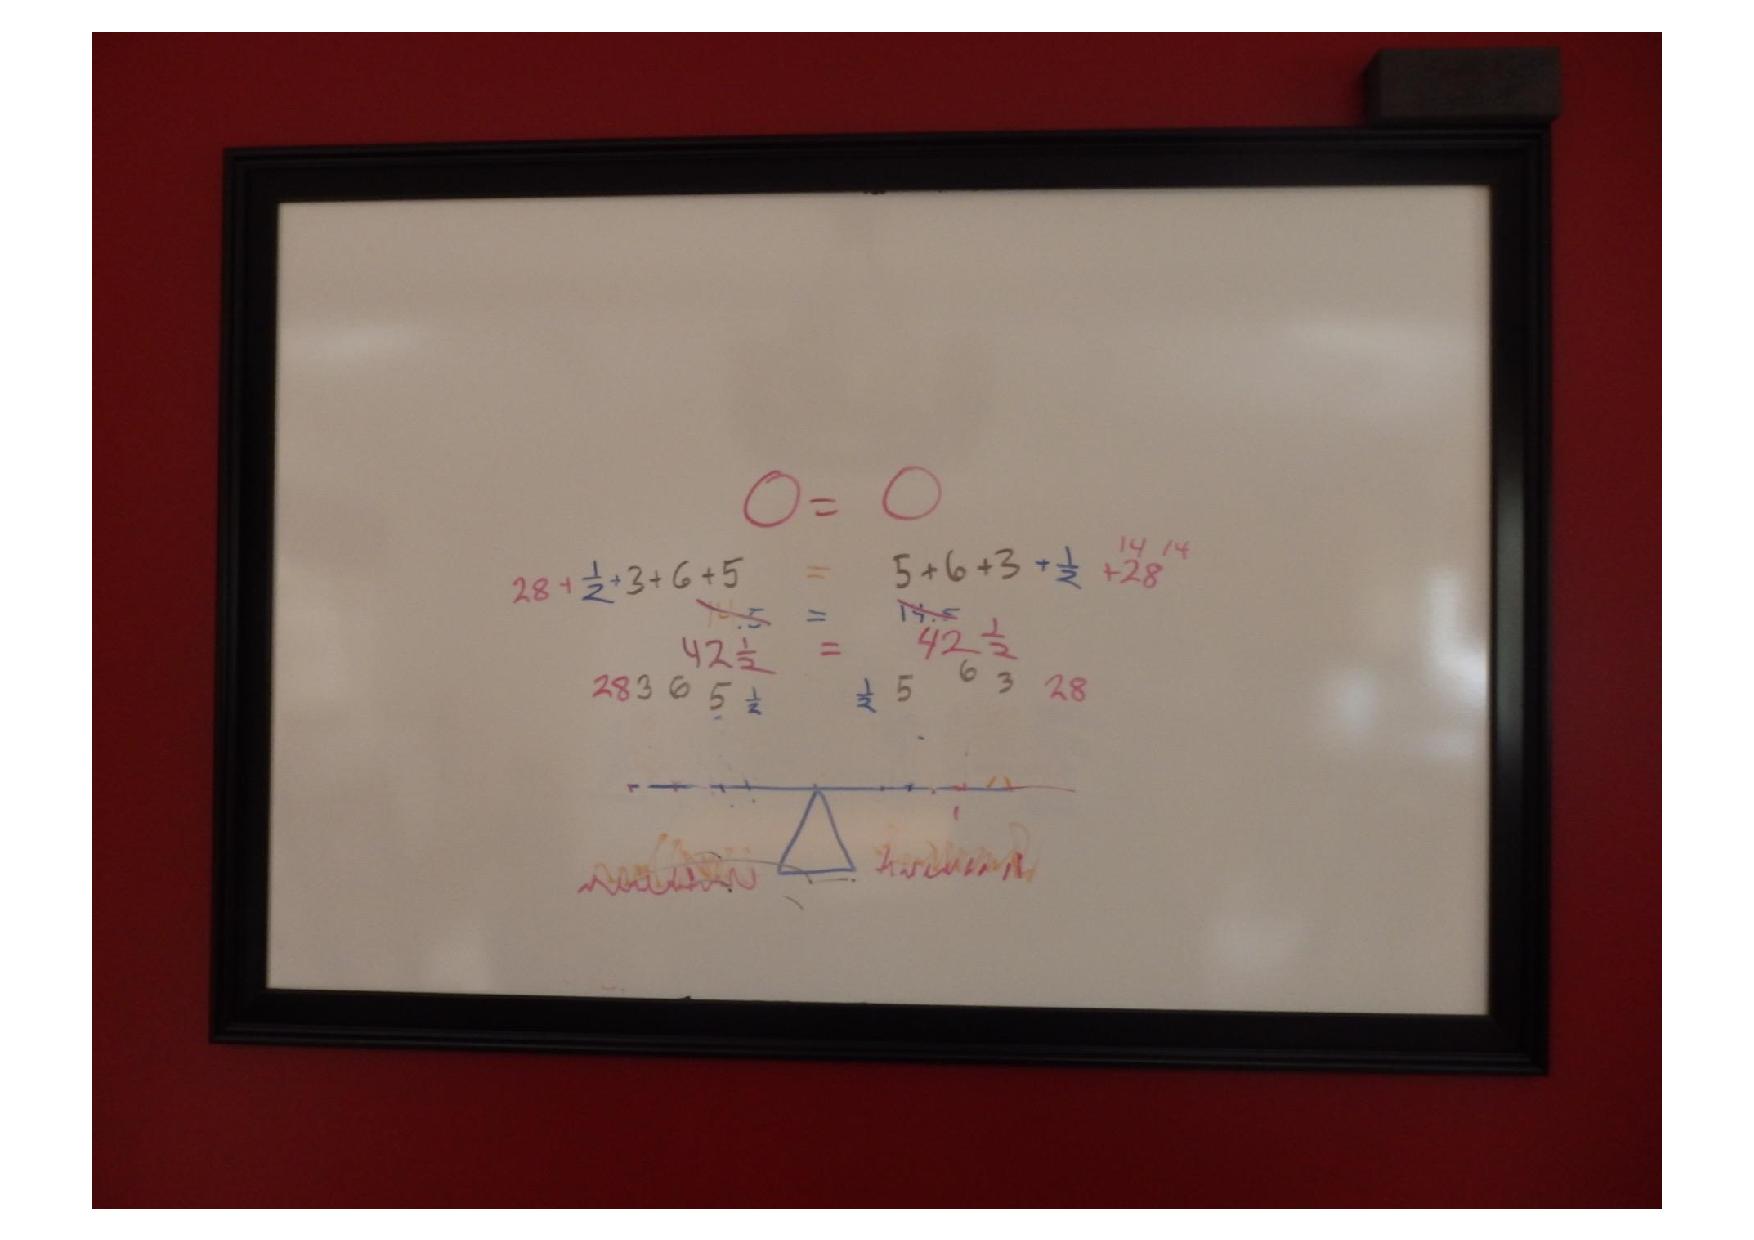 0 = 0
14 14
28 + 1/2 + 3 + 6 + 5 = 5 + 6 + 3 + 1/2 + 28
14.5 = 14.5
42 1/2 = 42 1/2
28 3 6 5 1/2 1/2 5 6 3 28